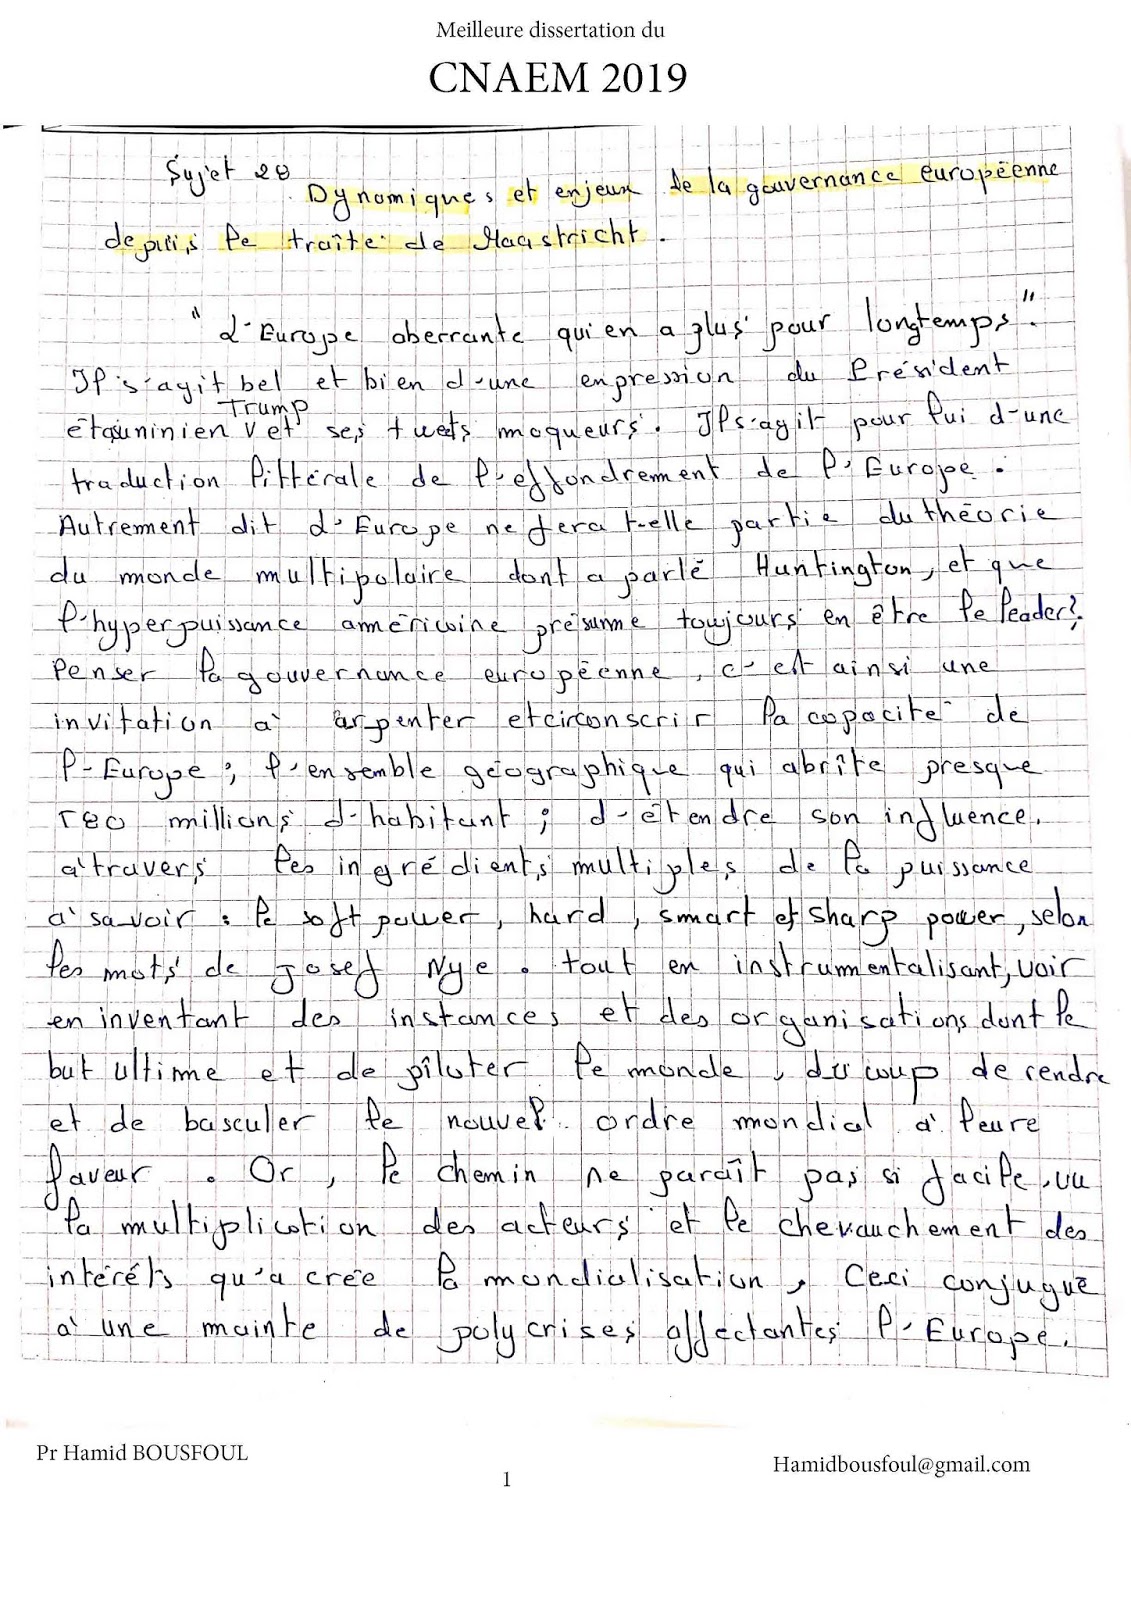 Meilleure dissertation du
CNAEM 2019
Sujet 20
Dynamiques et enjeux de la gouvernance européenne
depuis le traîté de Maastricht.
" L'Europe aberrante qui en a plus pour longtemps".
Il s'agit bel et bien d'une enpression du Président
Trump
étauninien V et ses tweets moqueurs. Il s'agit pour lui d'une
traduction littérale de l'effondrement de l'Europe.
Autrement dit L'Europe ne fera t-elle partie du théorie
du monde multipolaire dont a parlé Huntington, et que
l'hyperpuissance américaine présume toujours en être le leader?
Penser la gouvernance européenne, c'est ainsi une
invitation à arpenter et circonscrir la capacité de
l'Europe; l'ensemble géographique qui abrîte presque
millions d'habitant; d'étendre son influence.
à travers les ingrédients multiples de la puissance
à savoir : le soft power, hard, smart et sharp power, selon
les mots de Josef Nye. tout en instrumentalisant, voir
en inventant des instances et des organisations dont le
but ultime et de pîloter le monde, du coup de rendre
et de basculer le nouvel ordre mondial à leure
faveur. Or, le chemin ne paraît pas si facile, vu
la multiplication des acteurs et le chevauchement des
intérêts qu'a crée la mondialisation, Ceci conjugué
à une mainte de polycrises affectantes l'Europe.
Pr Hamid BOUSFOUL
Hamidbousfoul@gmail.com
1